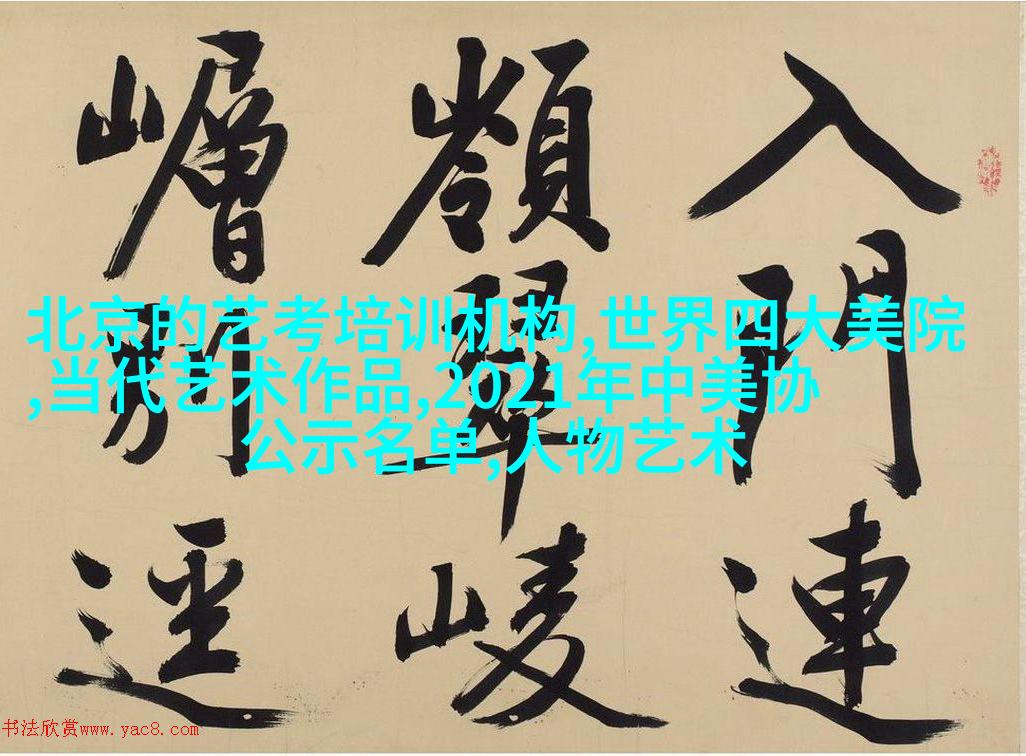 入門連
嶺翠崚
嶒別逕
北京的艺考培训机构,世界四大美院
,当代艺术作品,2021年中美协
公示名单,人物艺术
书法欣赏www.yac8.com